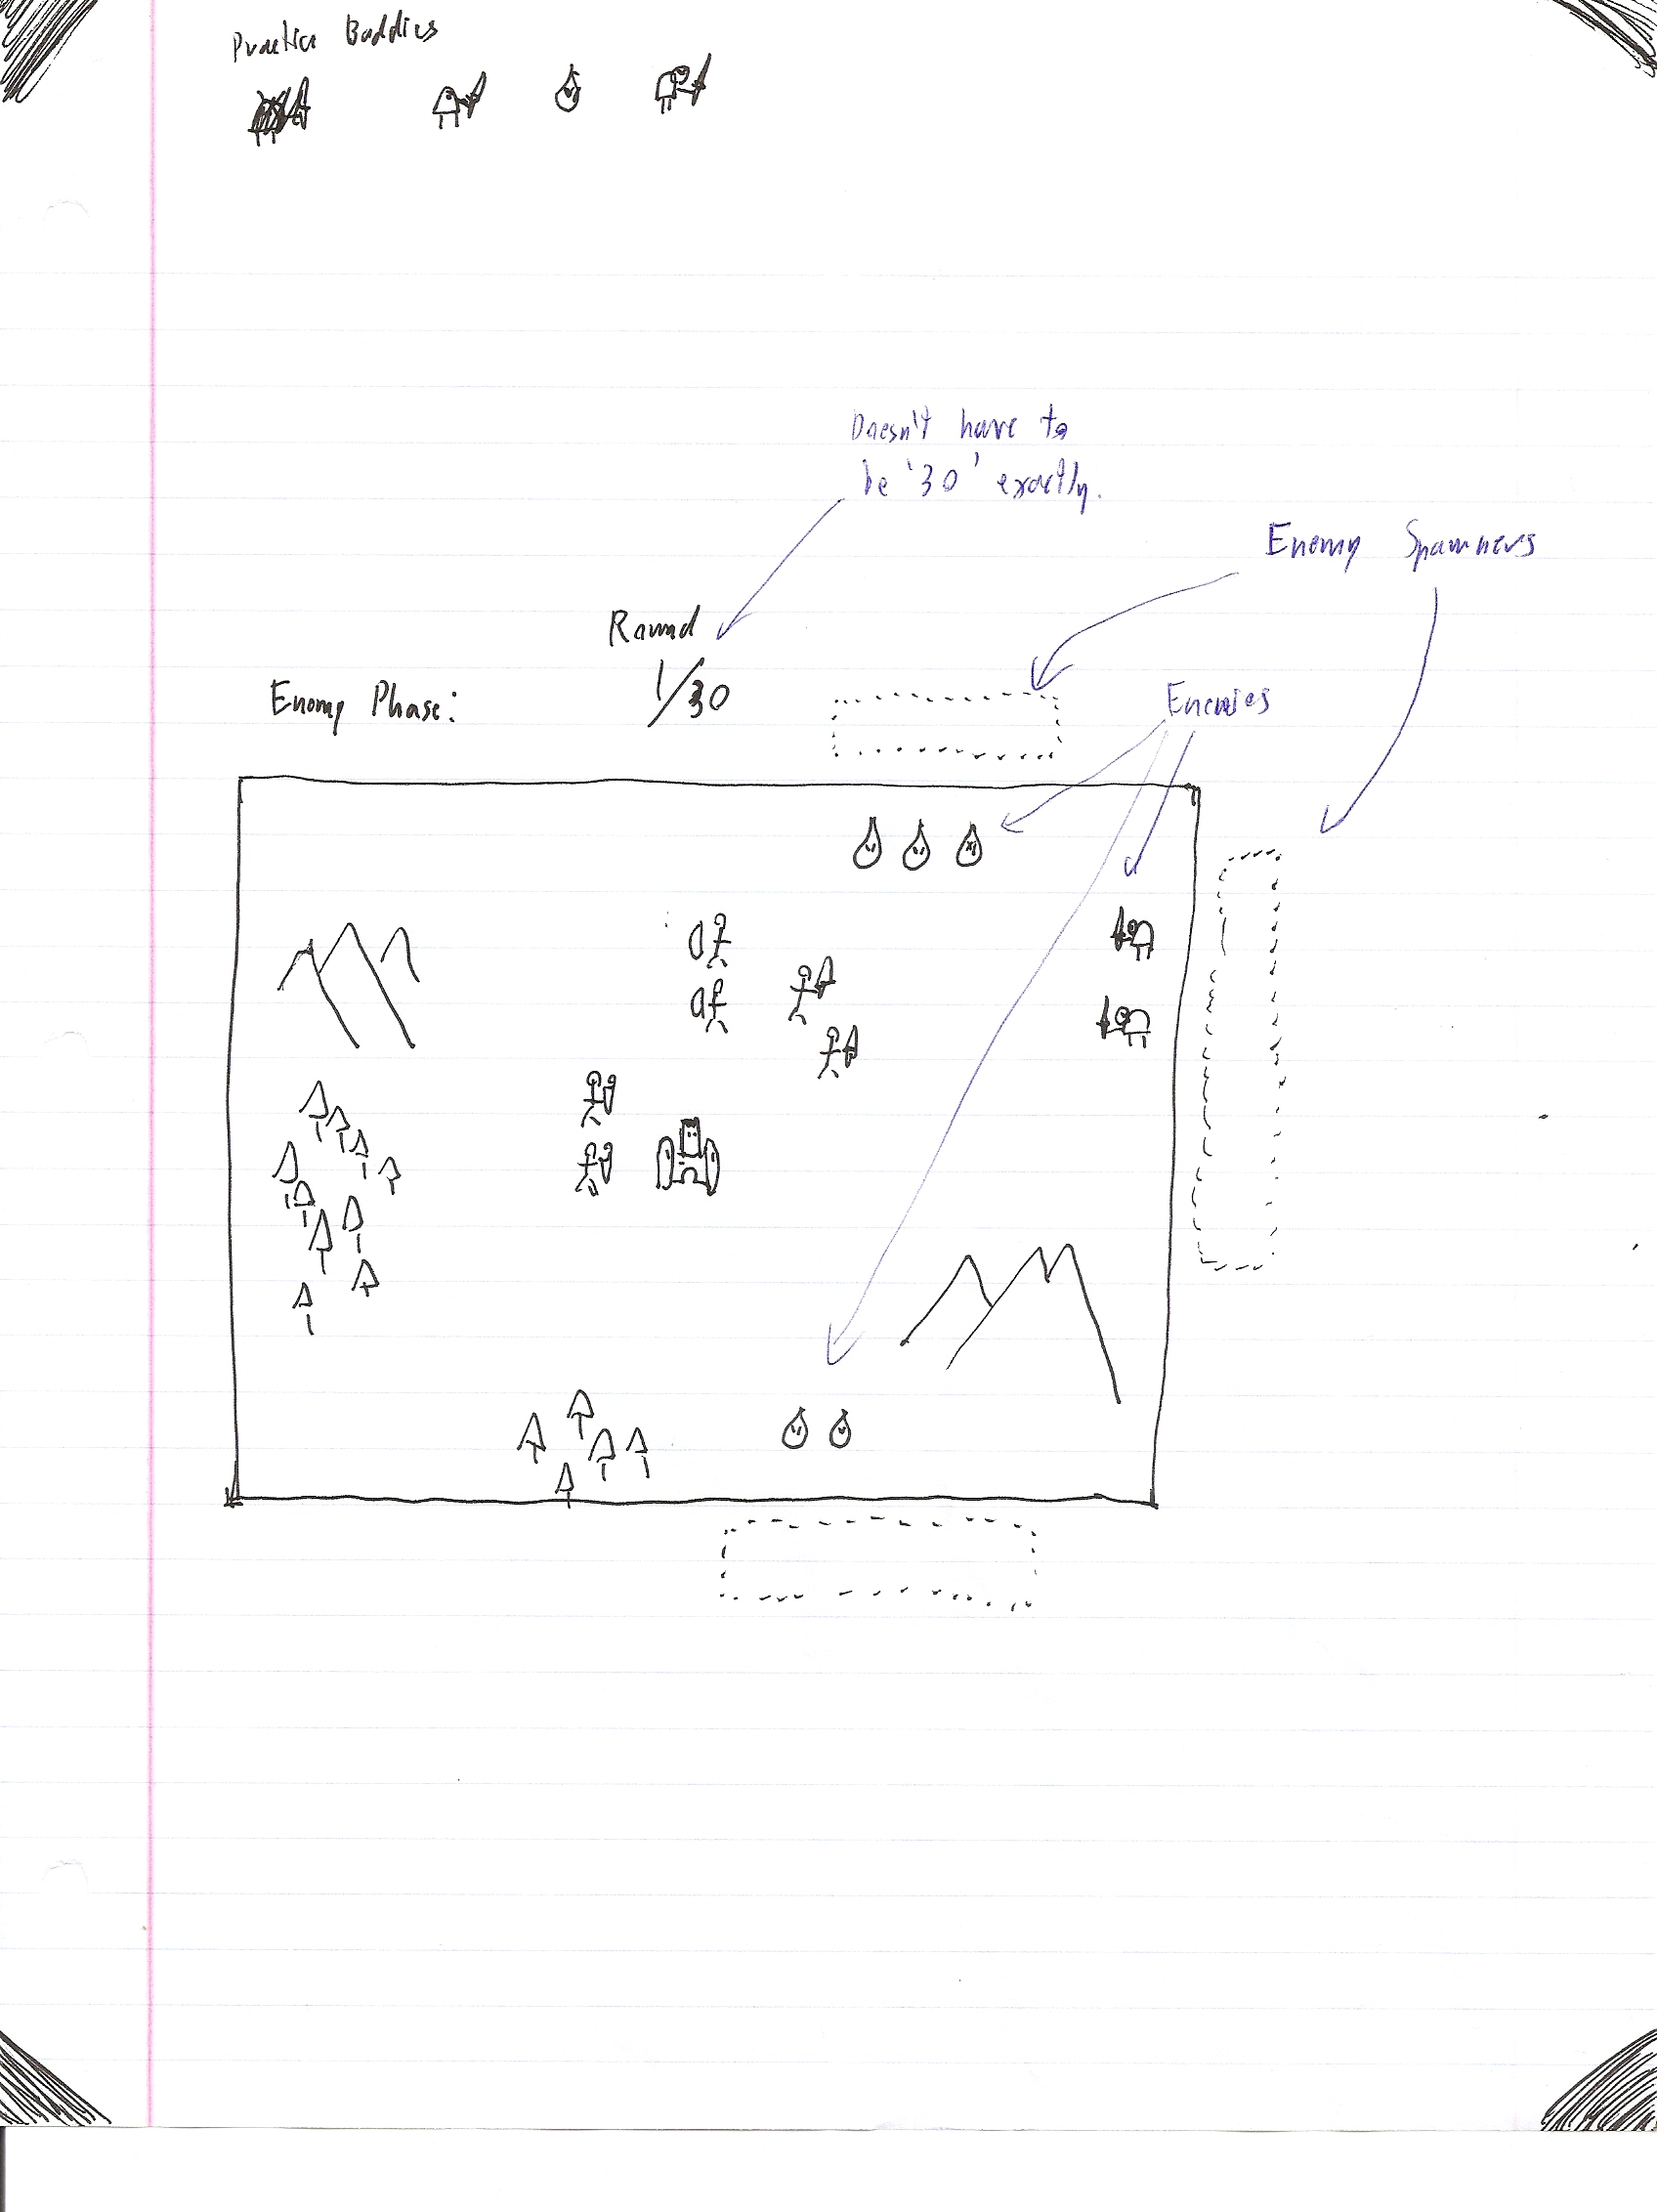 Practice Baddies
Doesn't have to
be '30' exactly.
Enemy Spawners
Round
1/30
Enemy Phase:
Enemies